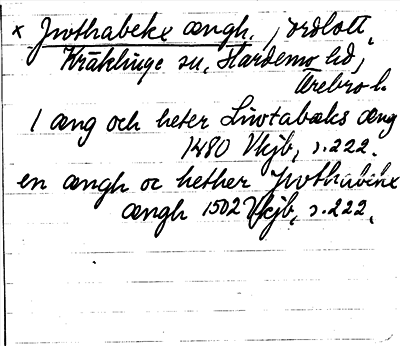 x Jwthabekx ængh, jordlott,
Kräklinge sn, Hardemo hd,
Örebro l.
1 æng och heter Liwtabæks æng
1480 Vkjb, s.222.
en ængh oc hether Jwthabekx
ængh 1502 Vkjb, s.222.